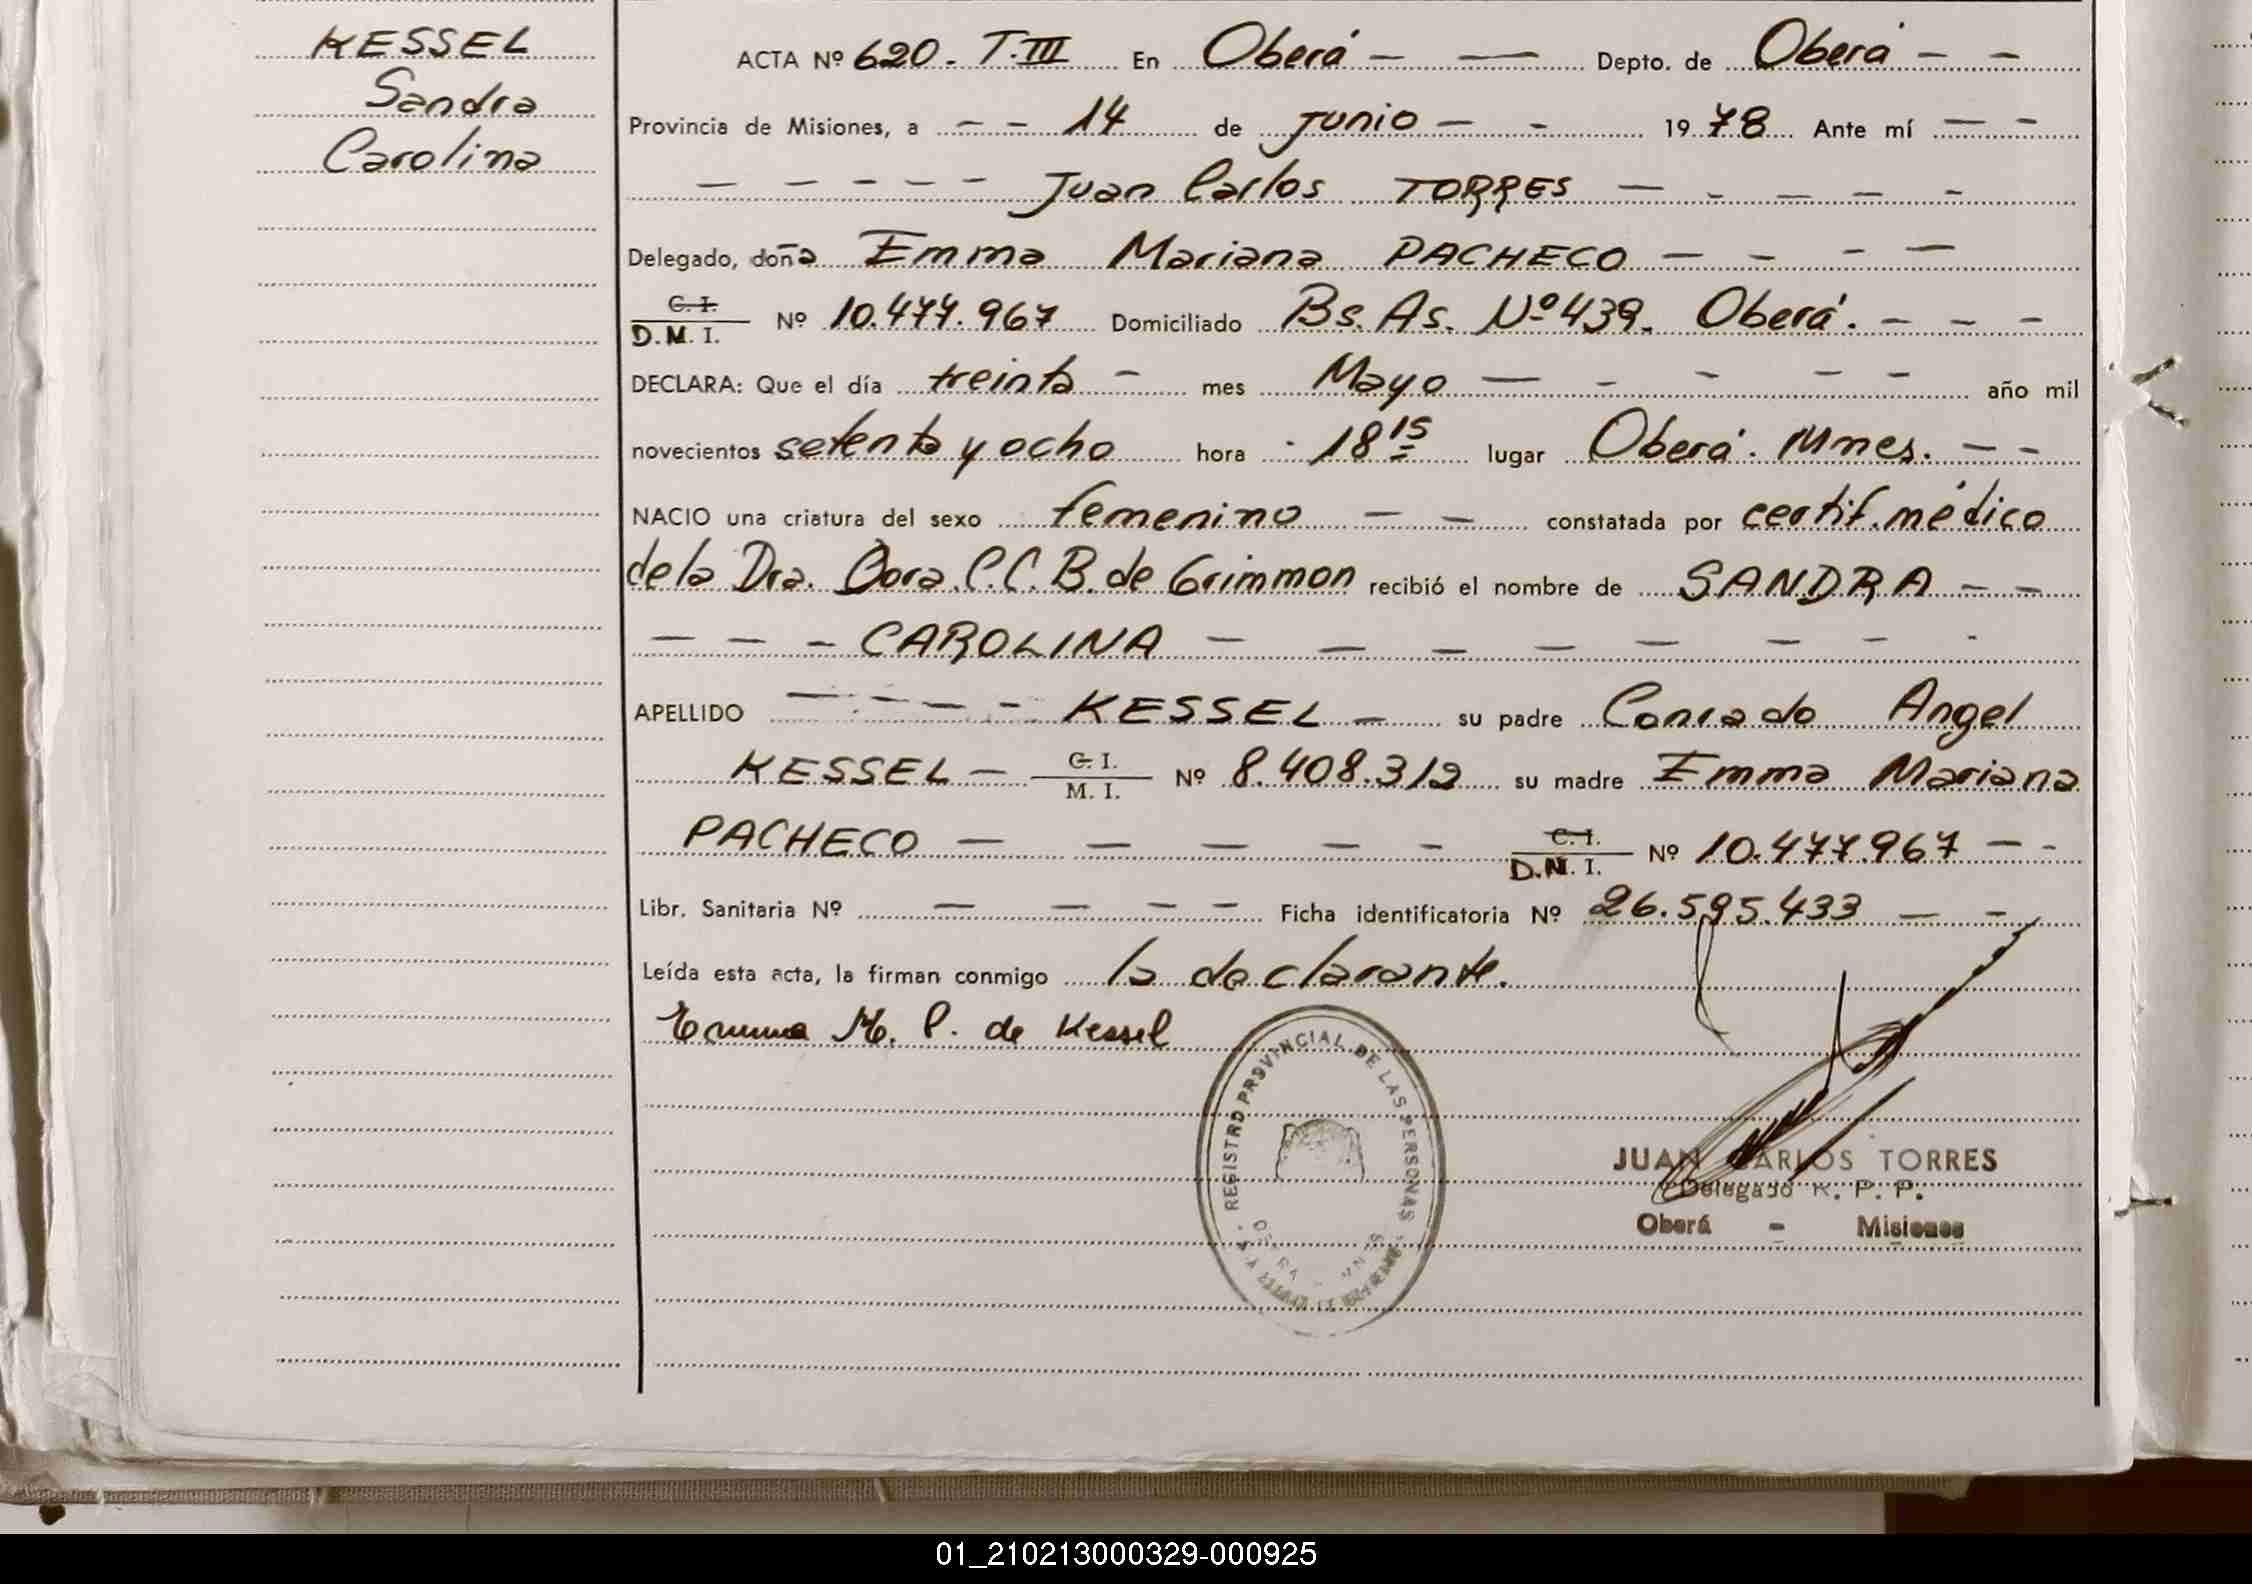 KESSEL
Sandra
Carolina
ACTA Nº 620. T. III En Oberá — — Depto. de Oberá — —
Provincia de Misiones, a — — 14 de junio — - 1978 Ante mí — —
— — — — — Juan Carlos TORRES — - — — -
Delegado, doña Emma Mariana PACHECO — - - —
C. I.
D. M. I. Nº 10.477.967 Domiciliado Bs. As. Nº 439. Oberá. - — —
DECLARA: Que el día treinta - mes Mayo — - - - - año mil
novecientos setenta y ocho hora - 18 15 lugar Oberá. Mnes. — -
NACIO una criatura del sexo femenino — — constatada por certif. médico
de la Dra. Dora C. C. B. de Grimmon recibió el nombre de SANDRA — —
— — - CAROLINA — — — — — — - -
APELLIDO — - — - KESSEL — su padre Conrado Angel
KESSEL — C. I.
M. I. Nº 8.408.312 su madre Emma Mariana
PACHECO — — — — - C. I.
D. N. I. Nº 10.477.967 — -
Libr. Sanitaria Nº — — — - Ficha identificatoria Nº 26.595.433 — -
Leída esta acta, la firman conmigo la declarante.
Emma M. P. de Kessel
REGISTRO PROVINCIAL DE LAS PERSONAS
JUAN CARLOS TORRES
Delegado R. P. P.
Oberá - Misiones
01_210213000329-000925